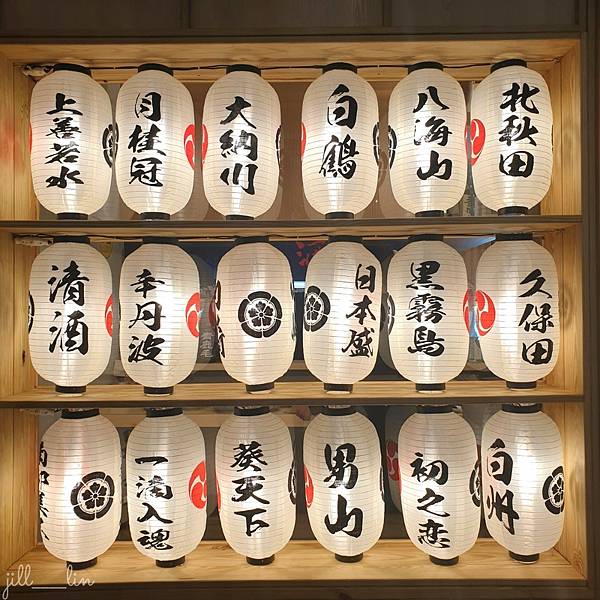 上善若水
月桂冠
大納川
白鶴
八海山
北秋田
清酒
辛丹波
日本盛
黒霧島
久保田
一滴入魂
葵天下
男山
初之恋
白州
jill___lin